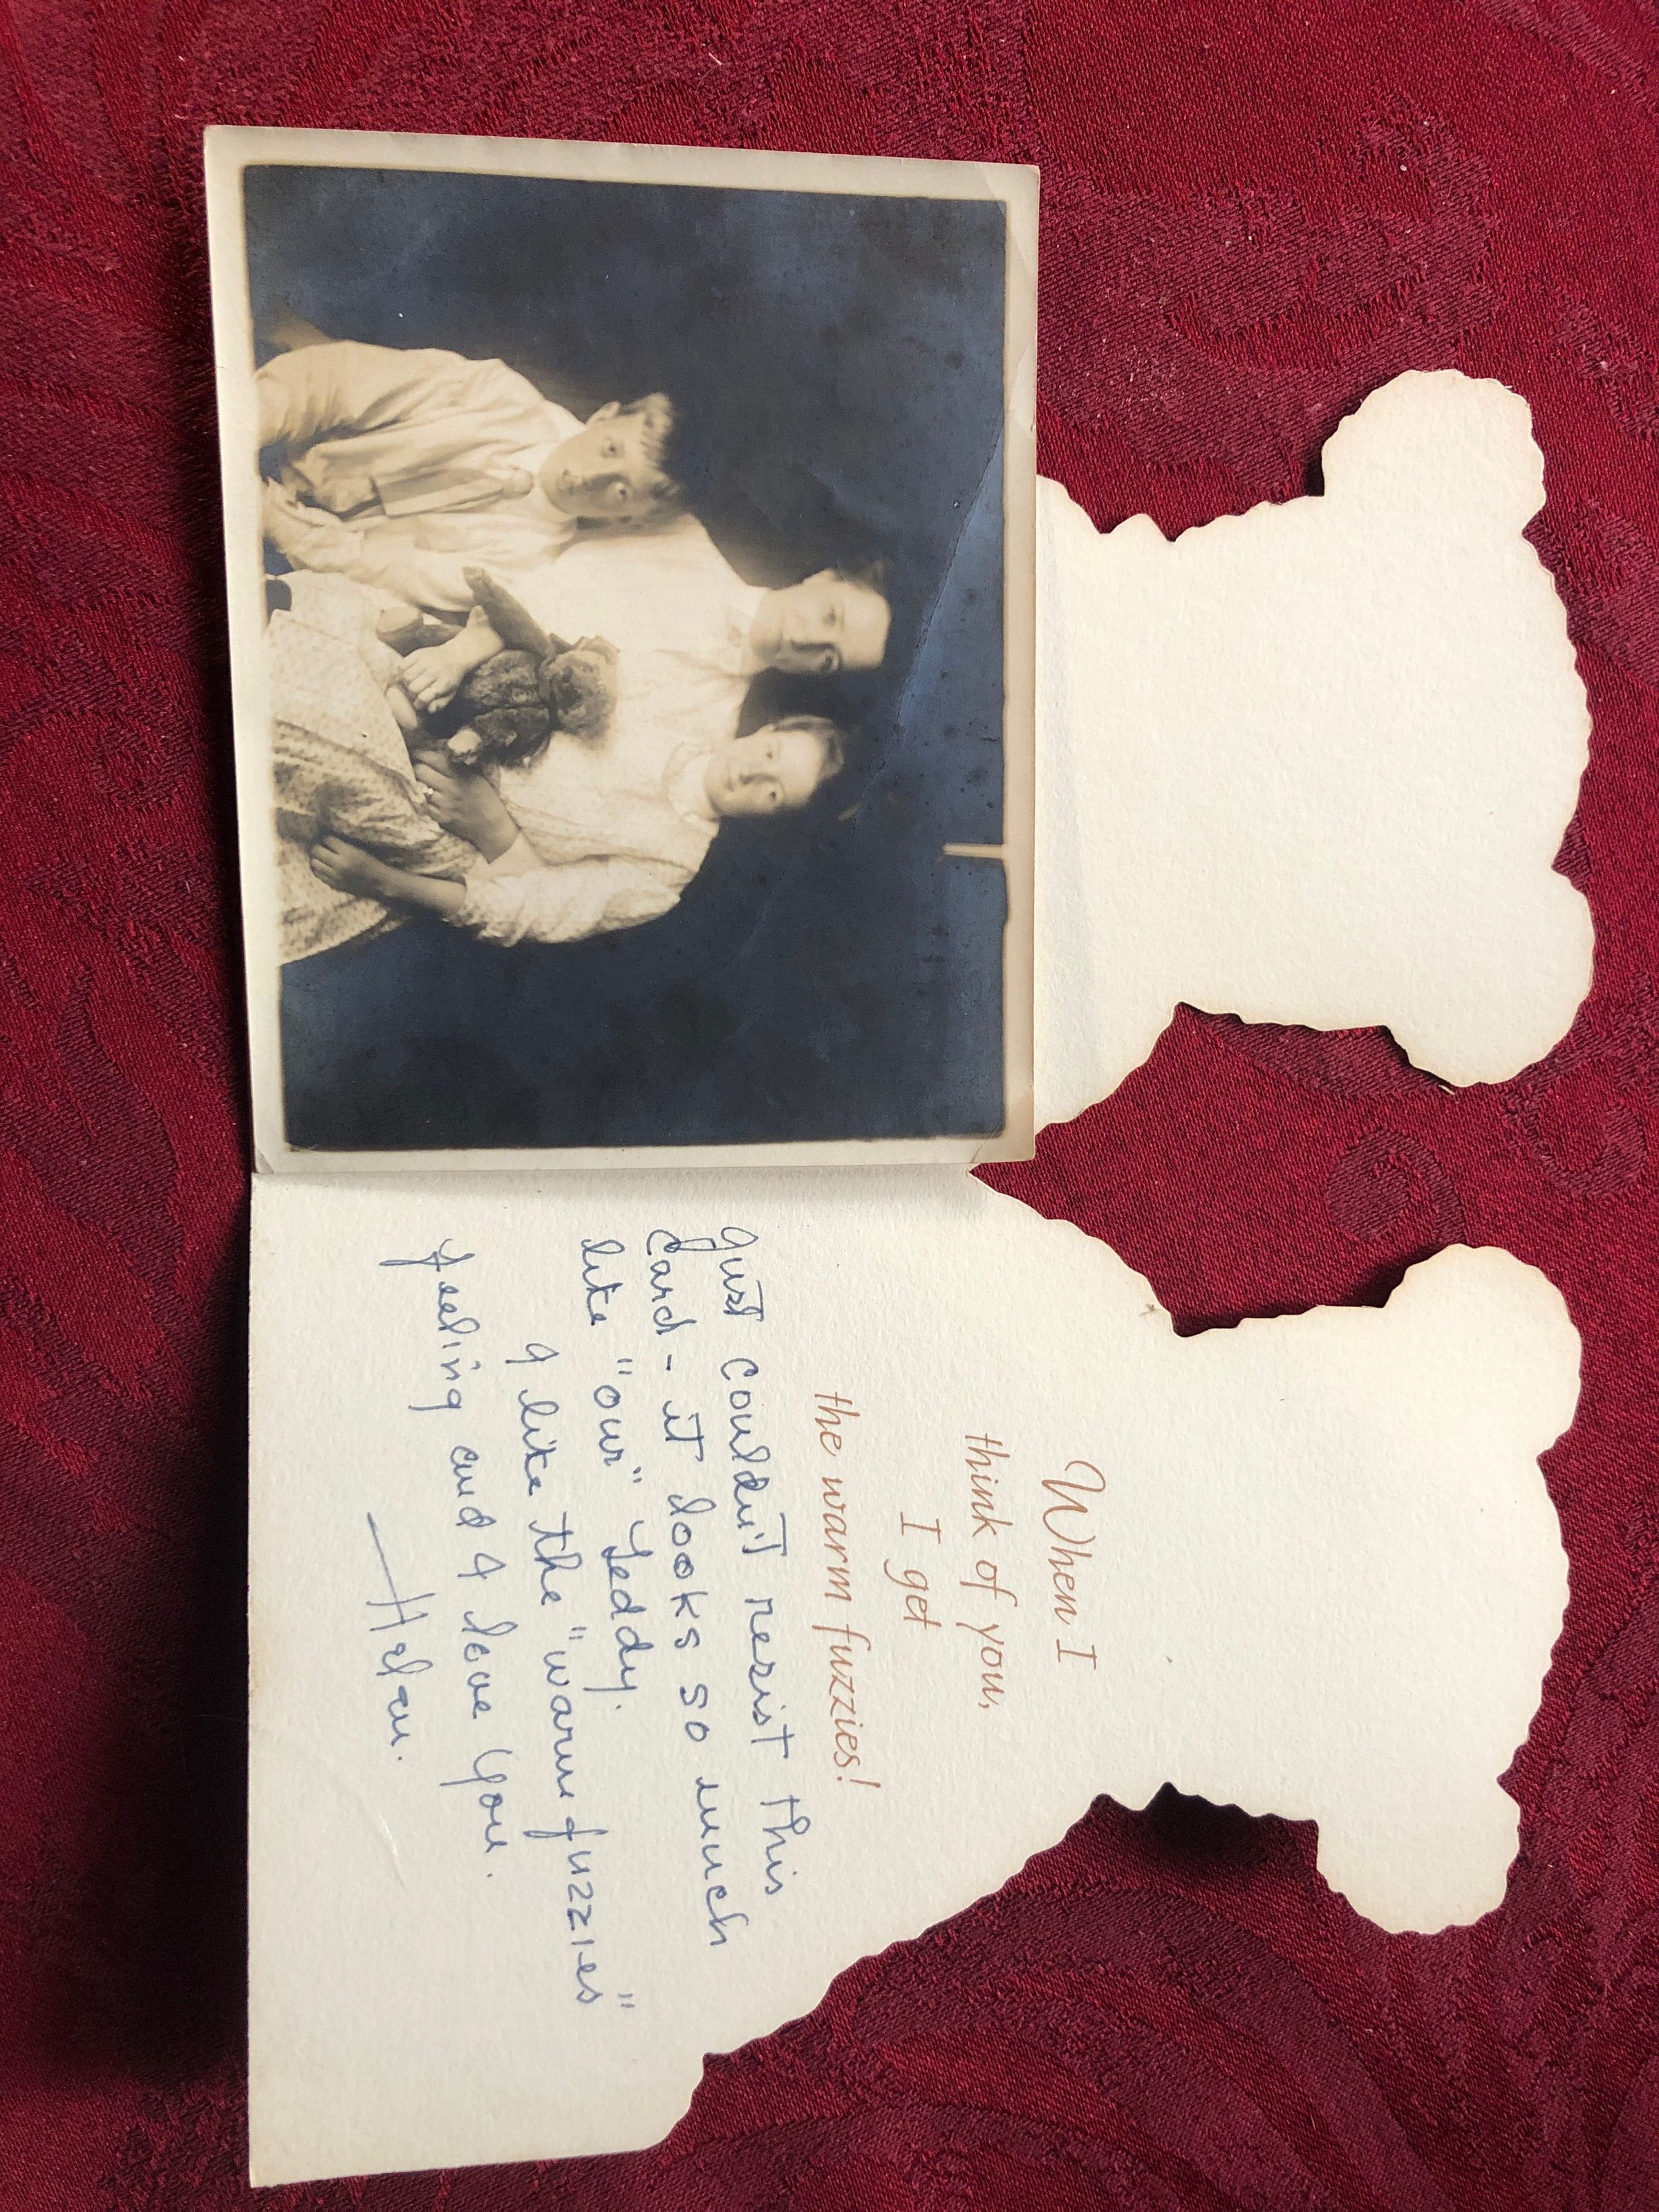 When I
think of you,
I get
the warm fuzzies!
Just couldn't resist this
Card - it looks so much
like "our" Teddy.
I like the "warm fuzzies"
feeling and I love you.
— Helen.